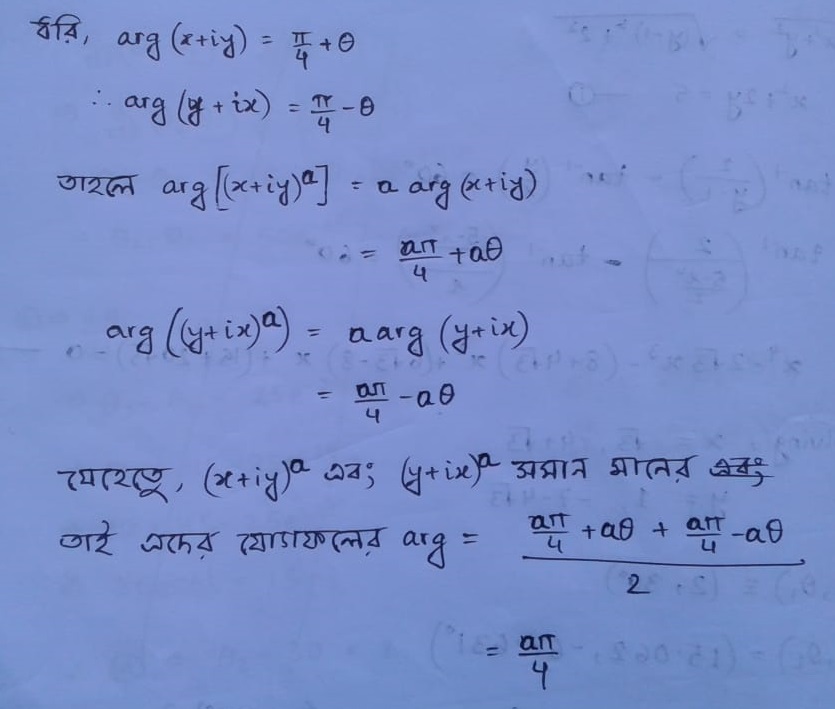 ধরি, arg (x+iy) = π/4 + θ
∴ arg (y + ix) = π/4 - θ
তাহলে arg [(x+iy)^a] = a arg (x+iy)
= aπ/4 + aθ
arg ((y+ix)^a) = a arg (y+ix)
= aπ/4 - aθ
যেহেতু, (x+iy)^a এবং (y+ix)^a সমান মানের এবং
তাই এদের যোগফলের arg = (aπ/4 + aθ + aπ/4 - aθ)/2
= aπ/4